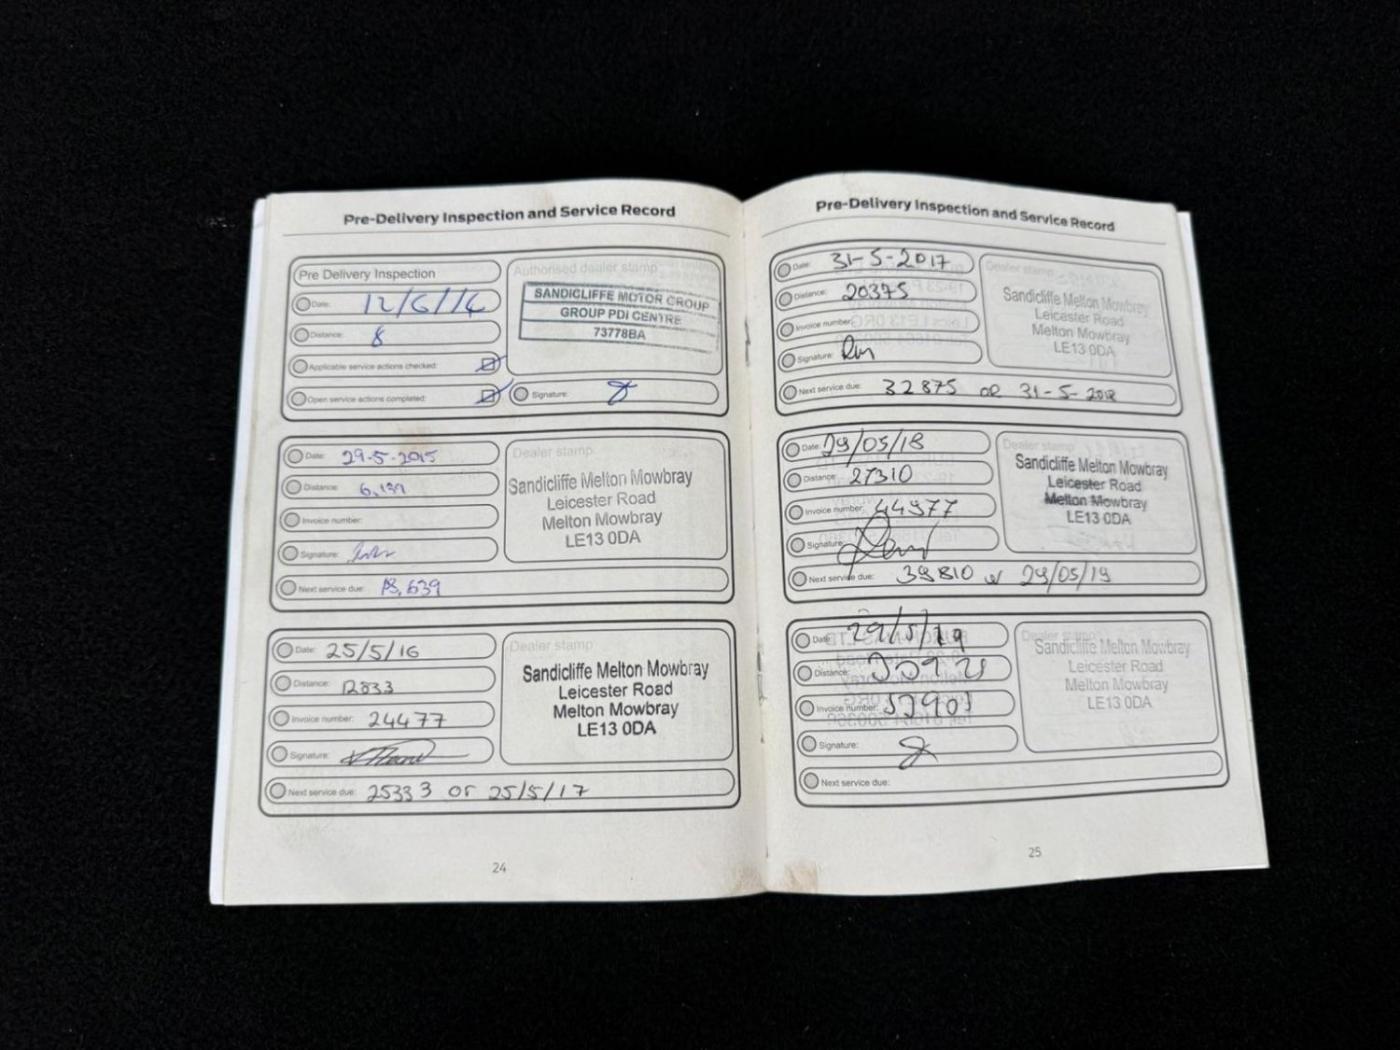 Pre-Delivery Inspection and Service Record
Pre Delivery Inspection
Date: 12/6/14
Distance: 8
Applicable service actions checked:
Open service actions completed:
Authorised dealer stamp
SANDICLIFFE MOTOR GROUP
GROUP PDI CENTRE
73778BA
Signature:
Date: 29-5-2015
Distance: 6,139
Invoice number:
Signature:
Next service due: 18,639
Dealer stamp
Sandicliffe Melton Mowbray
Leicester Road
Melton Mowbray
LE13 0DA
Date: 25/5/16
Distance: 12833
Invoice number: 24477
Signature:
Next service due: 25333 or 25/5/17
Dealer stamp
Sandicliffe Melton Mowbray
Leicester Road
Melton Mowbray
LE13 0DA
24
Pre-Delivery Inspection and Service Record
Date: 31-5-2017
Distance: 20375
Invoice number:
Signature:
Next service due: 32875 OR 31-5-2018
Dealer stamp
Sandicliffe Melton Mowbray
Leicester Road
Melton Mowbray
LE13 0DA
Date: 29/05/18
Distance: 27310
Invoice number: 44977
Signature:
Next service due: 39810 or 29/05/19
Dealer stamp
Sandicliffe Melton Mowbray
Leicester Road
Melton Mowbray
LE13 0DA
Date: 29/5/19
Distance:
Invoice number:
Signature:
Next service due:
Dealer stamp
Sandicliffe Melton Mowbray
Leicester Road
Melton Mowbray
LE13 0DA
25